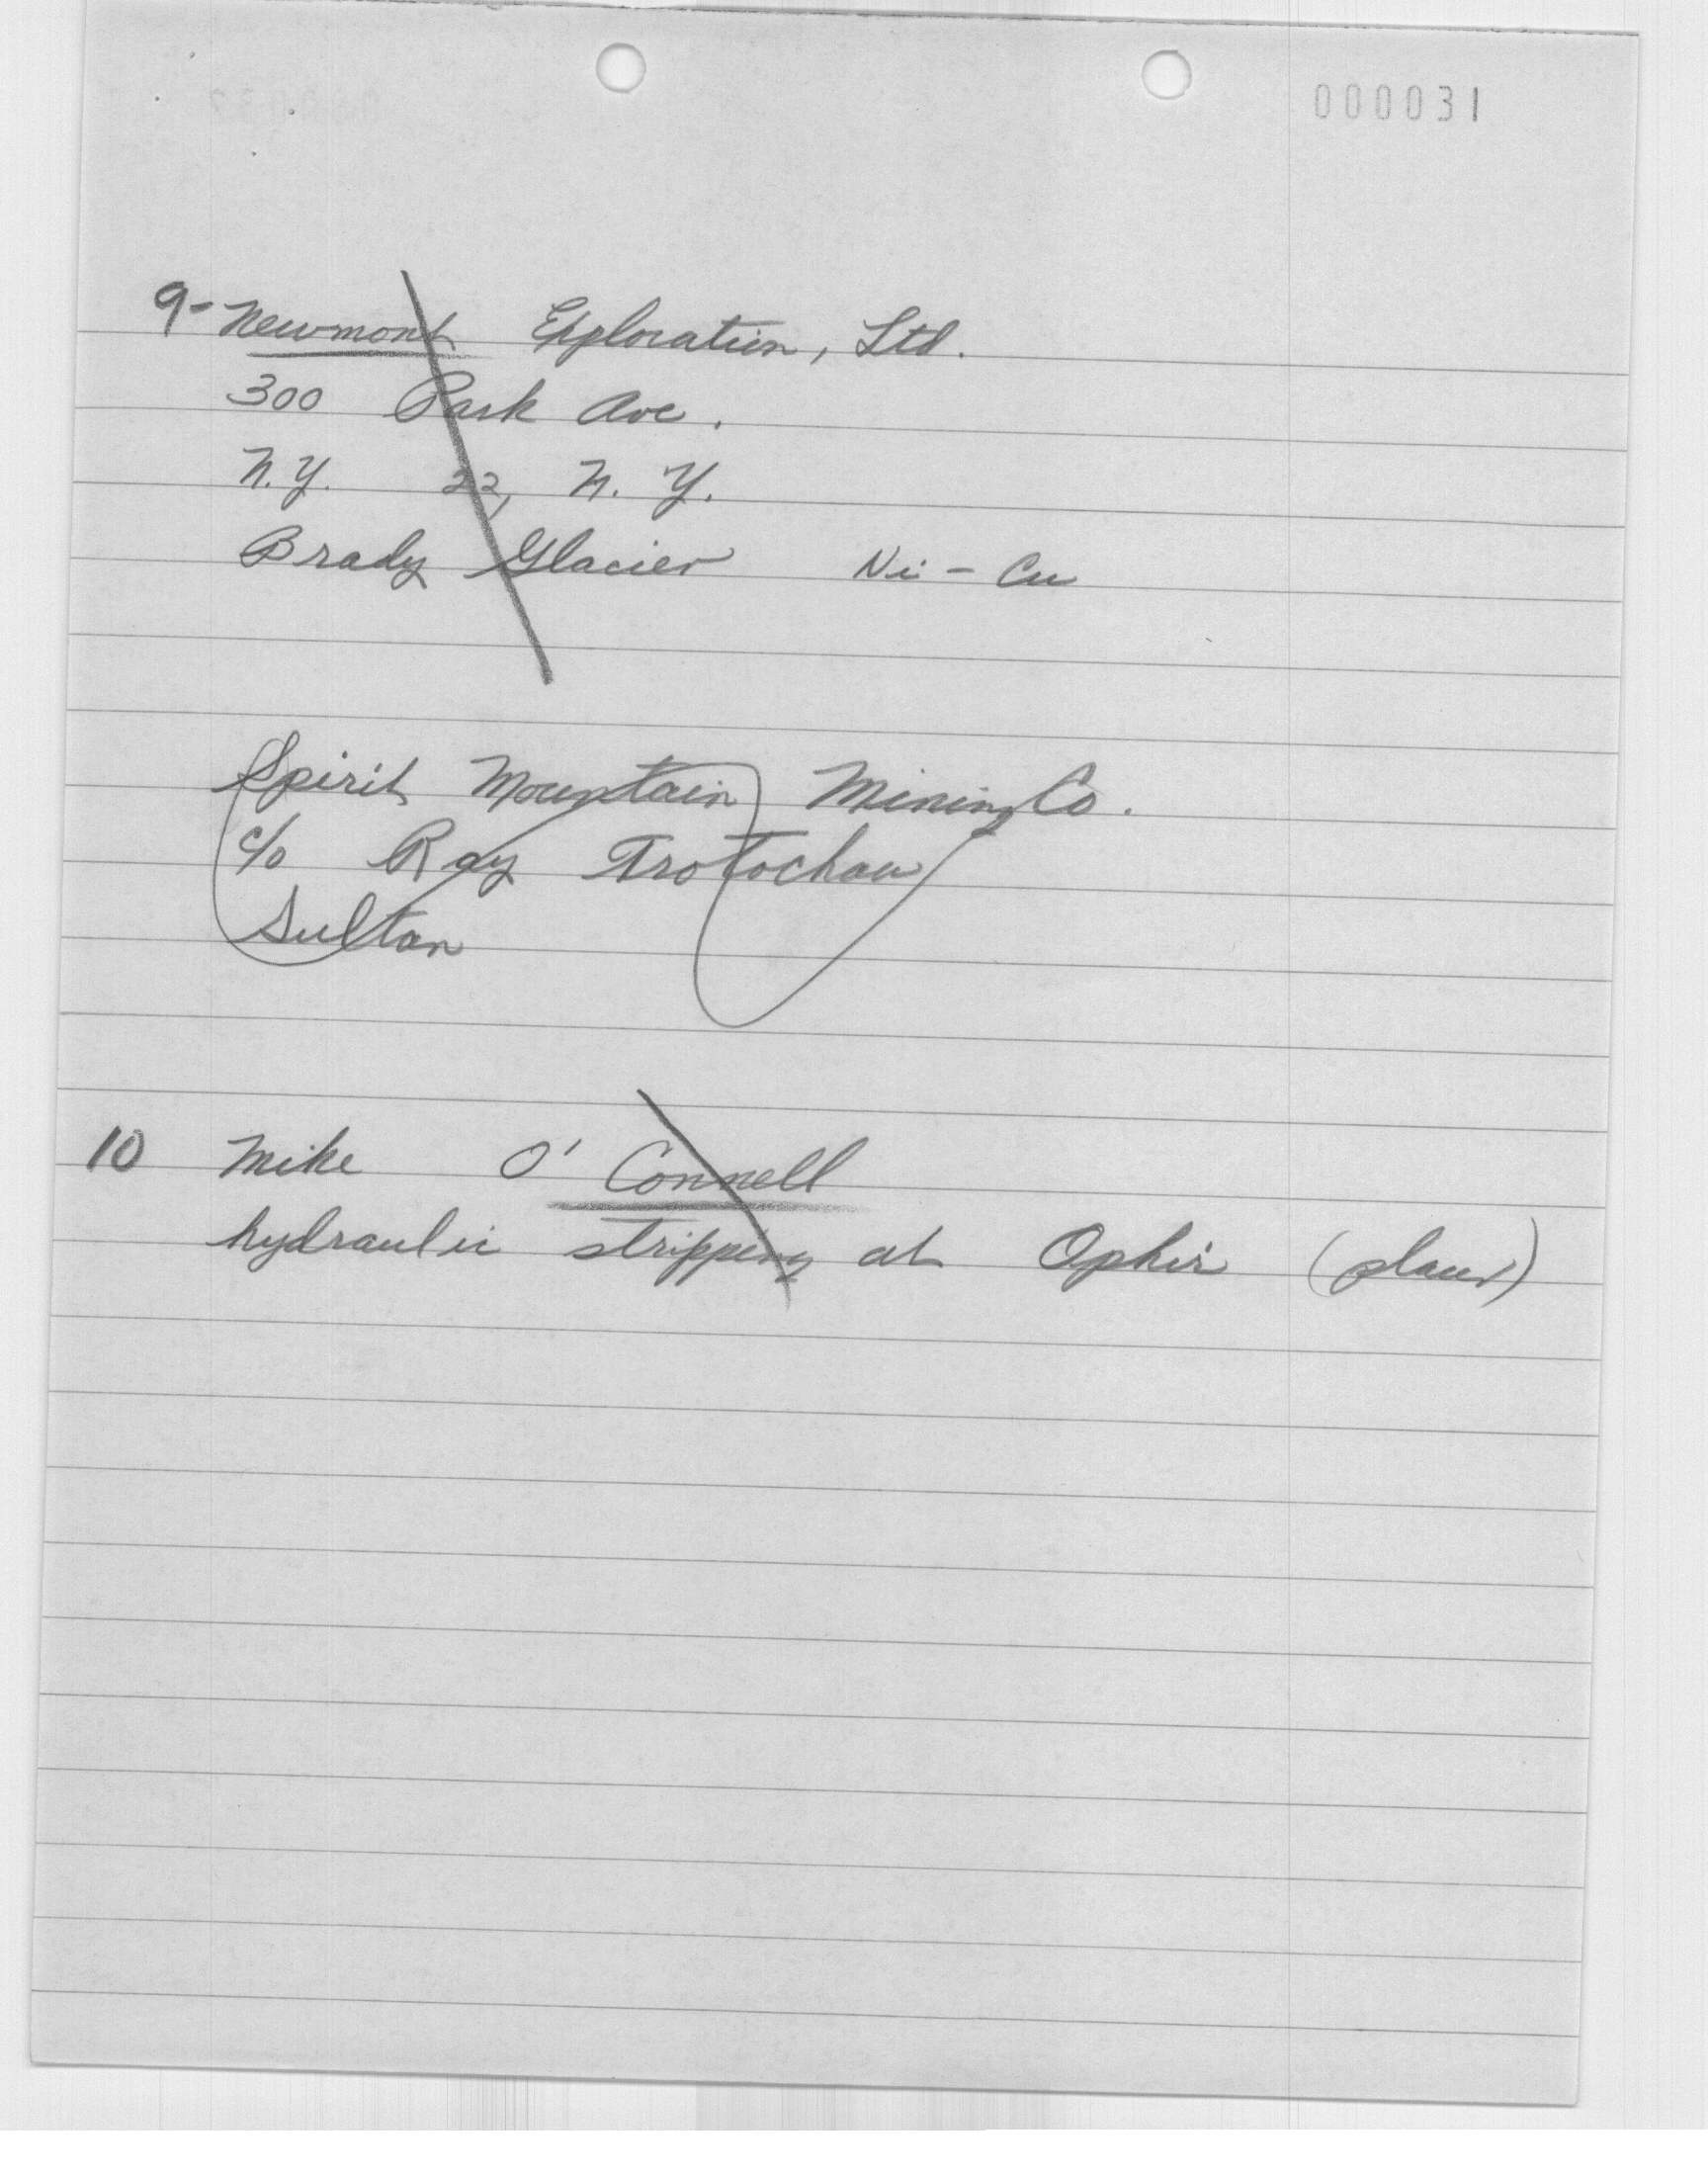 000031
9- Newmont Exploration, Ltd.
300 Park Ave.
N.Y. 22, N. Y.
Brady Glacier Ni - Cu
Spirit Mountain Mining Co.
c/o Ray Trotochau
Sultan
10 Mike O' Connell
hydraulic stripping at Ophir